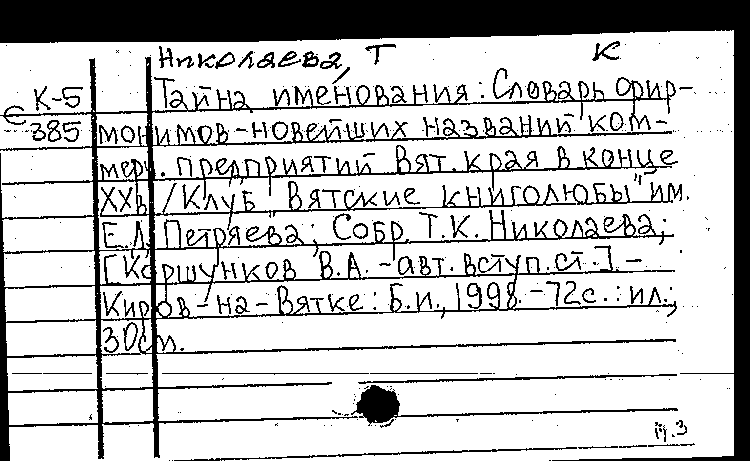 Николаева, Т К
К-5 Тайна именования: Словарь фир-
Є 385 монимов-новейших названий ком-
мерч. предприятий Вят. края в конце
XXв. /Клуб "Вятские книголюбы" им.
Е.Д. Петряева; Собр. Т.К. Николаева;
[Коршунков В.А. - авт. вступ. ст.] -
Киров-на-Вятке: Б.и., 1998. - 72с.: ил.;
30см.